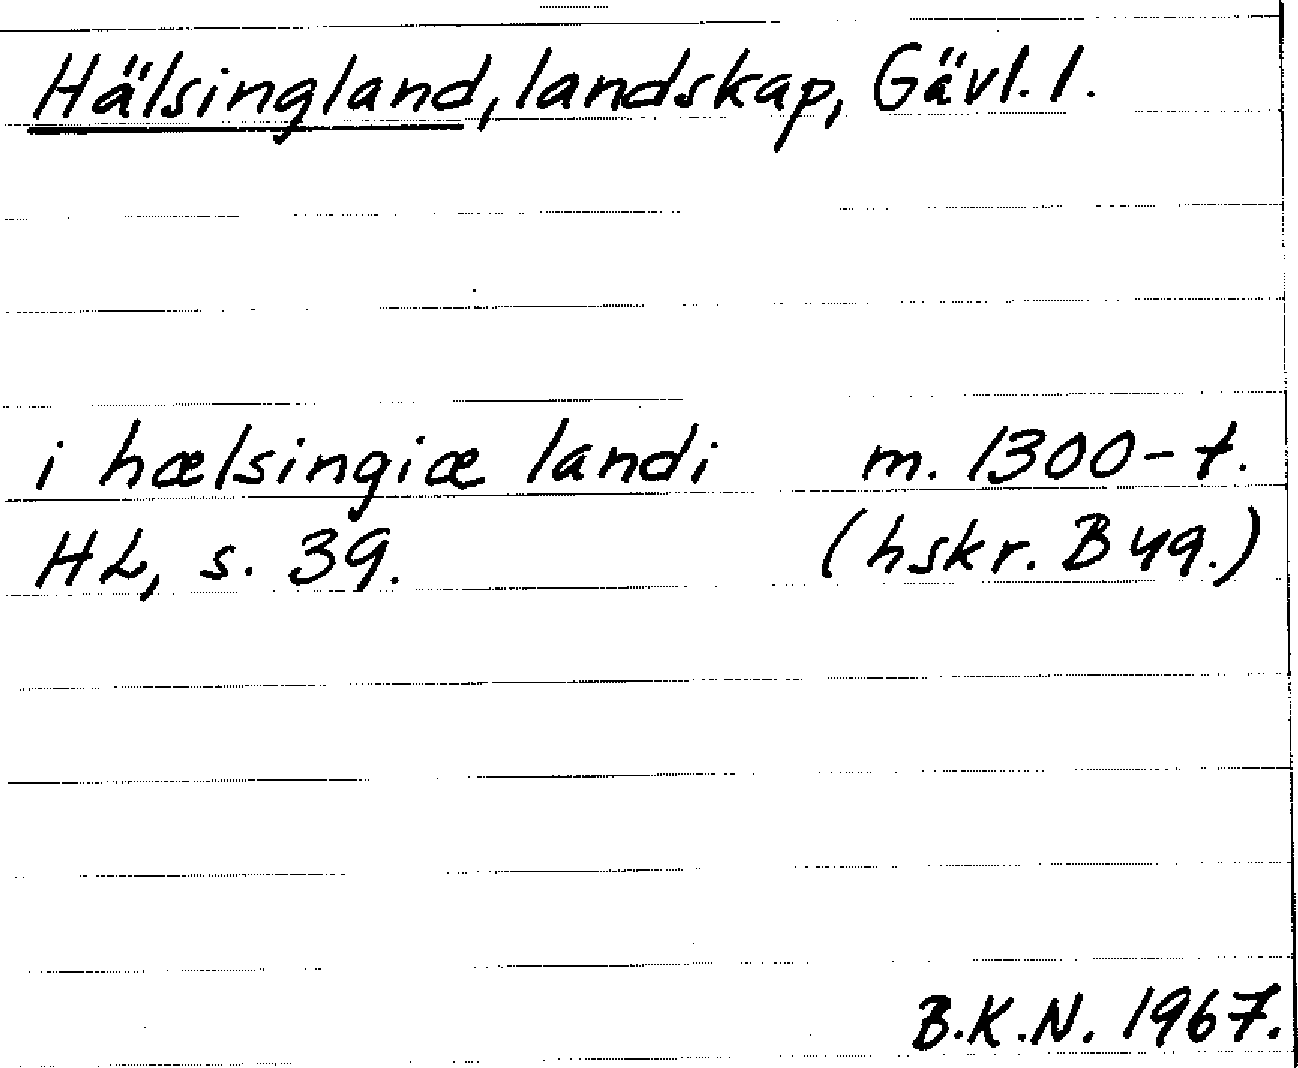 Hälsingland, landskap, Gävl. l.
i hælsingiæ landi m. 1300-t.
HL, s. 39. (hskr. B 49.)
B.K.N. 1967.